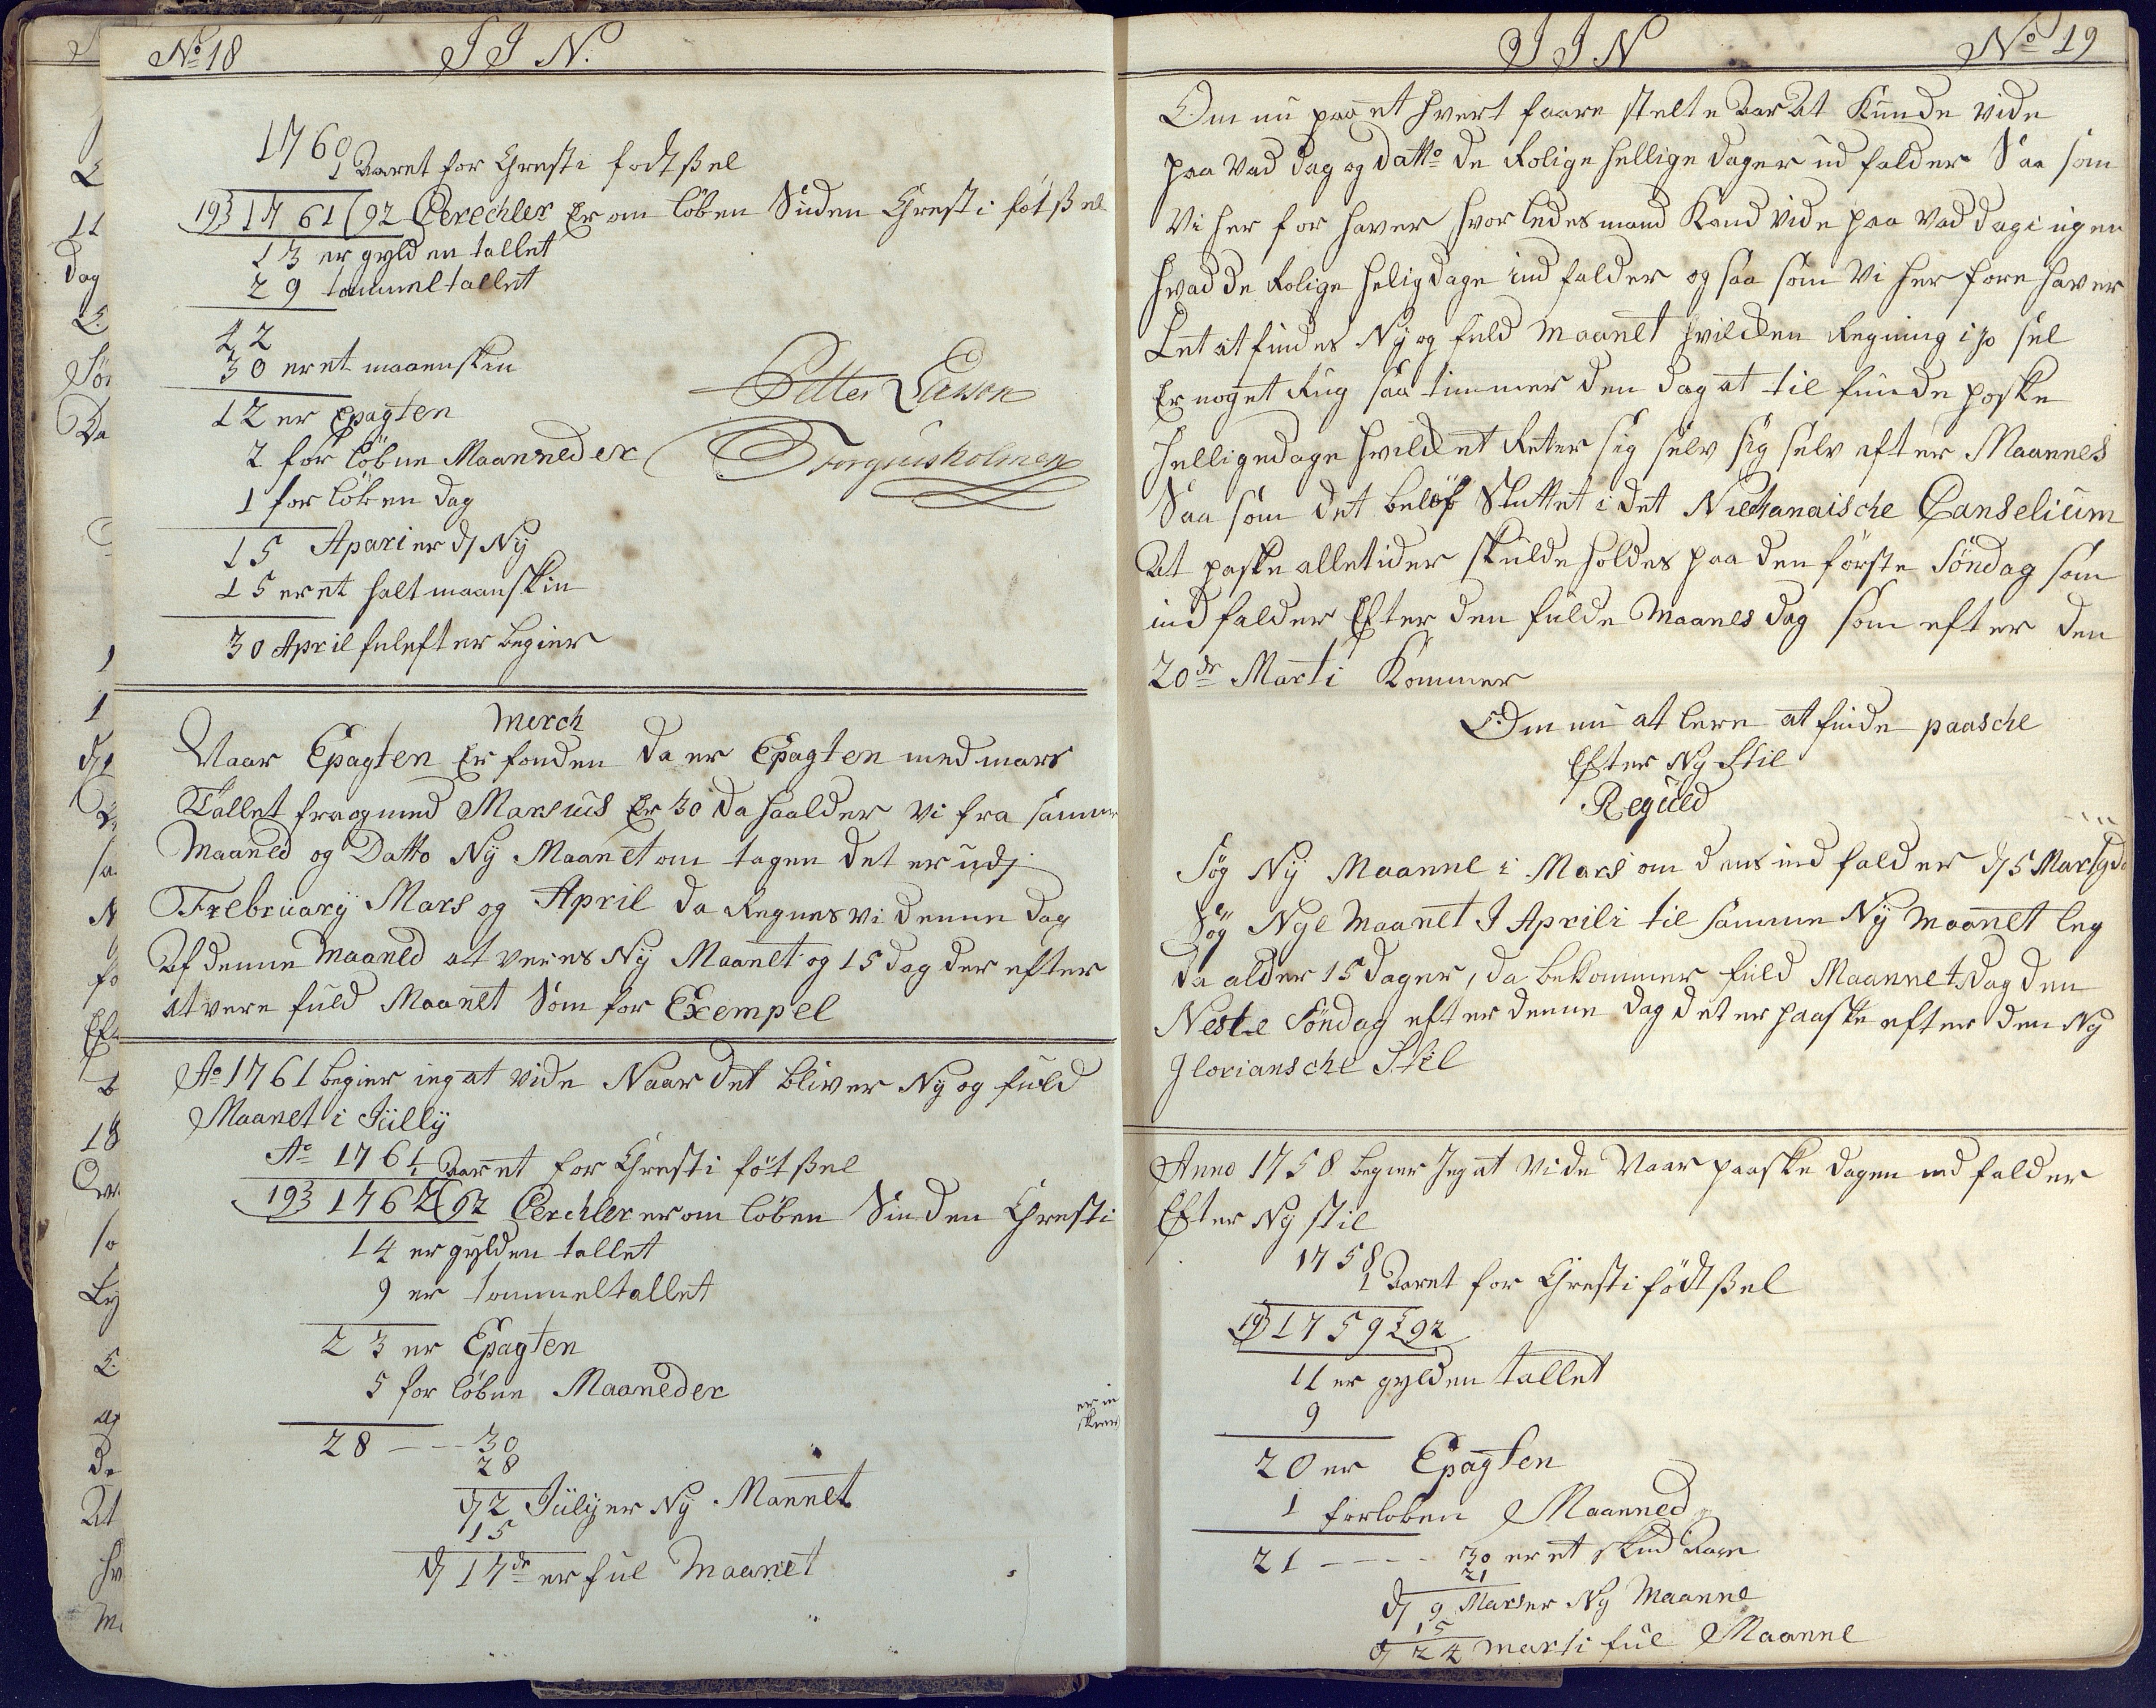 No 18 J J N.
1760
1 Aaret for Chresti fodtßel
19} 1761 (92 Cerechler Er om løben Siden Chresti føtßel
13 er gylden tallet
29 tommeltallet
42
30 er et maaenskin
12 er Epagten
2 før løbne Maanneder
1 for løben dag
15 Apari er d/ Ny
15 er et halt maanskin
30 April ful efter begier
Petter Lasson
Torgiusholmen
Merch
Naar Epagten Er fonden da er Epagten med mars
Tallet fra og med Marsius Er 30 da haalder vi fra samme
Maaned og Datto Ny Maanet om tagen det er udj
Frebruary Mars og April da Regnes vi denne dag
Af denne Maaned at veres Ny Maanet og 15 dag der efter
at vere fuld Maanet Som for Exempel
Ao 1761 begier ieg at vide Naar det bliver Ny og fuld
Maanet i Jully
Ao 1761
1 Aaret for Chresti føtßel
19} 1762 (92 Cerchler er om løben Sinden Chresti
14 er gylden tallet
9 er tommeltallet
23 er Epagten
5 for løbne Maaneder
28 --- 30
28
d/ 2 Julij er Ny Mannet
15
d/ 17de er ful Maanet
J J N No 19
Om nu paa et hvert faare stelte Aar At Kunde vide
paa vad dag og datto de Rolige hellige dager ud falder Saa som
Vi her for haver hvor ledes mand Kand vide paa vad dag i ugen
hvad de Rolige helig dage ind falder og saa som Vi her fore haver
Let at findes Ny og fuld Maanet hvilcken Regning
Er noget Rug saa timmer den dag at til finde poske
helligedage hvilcket Retter sig selv sig selv efter Maannes
Saa som det beløf Sluttet i det Niechanaische Canselium
At paske alletider skulde holdes paa den første Søndag som
ind falder Efter den fulde Maanes dag som efter den
20de Marti Kommer
Om nu at lere at finde paasche
Efter Ny Stil
Reguld
Søg Ny Maanne i Mars om dens ind falder d/ 5 Mars
Søg Nye Maanet I Aprili til samme Ny Maanet leg
da alder 15 dager, da bekommer fuld Maannets dag den
Neste Søndag efter denne dag det er paaske efter den Ny
Gloriansche Stil
Anno 1758 begier Jeg at Vide Naar paaske dagen ind falder
Efter Ny stil
1758
1 Aaret for Chresti fødtßel
19} 1759 {92
11 er gylden tallet
9
20 er Epagten
1 forloben Maanned
21 ---- 30 er et skud Aar
21
d/ 9 Mars er Ny Maanne
15
d/ 24 Marti ful Maanne